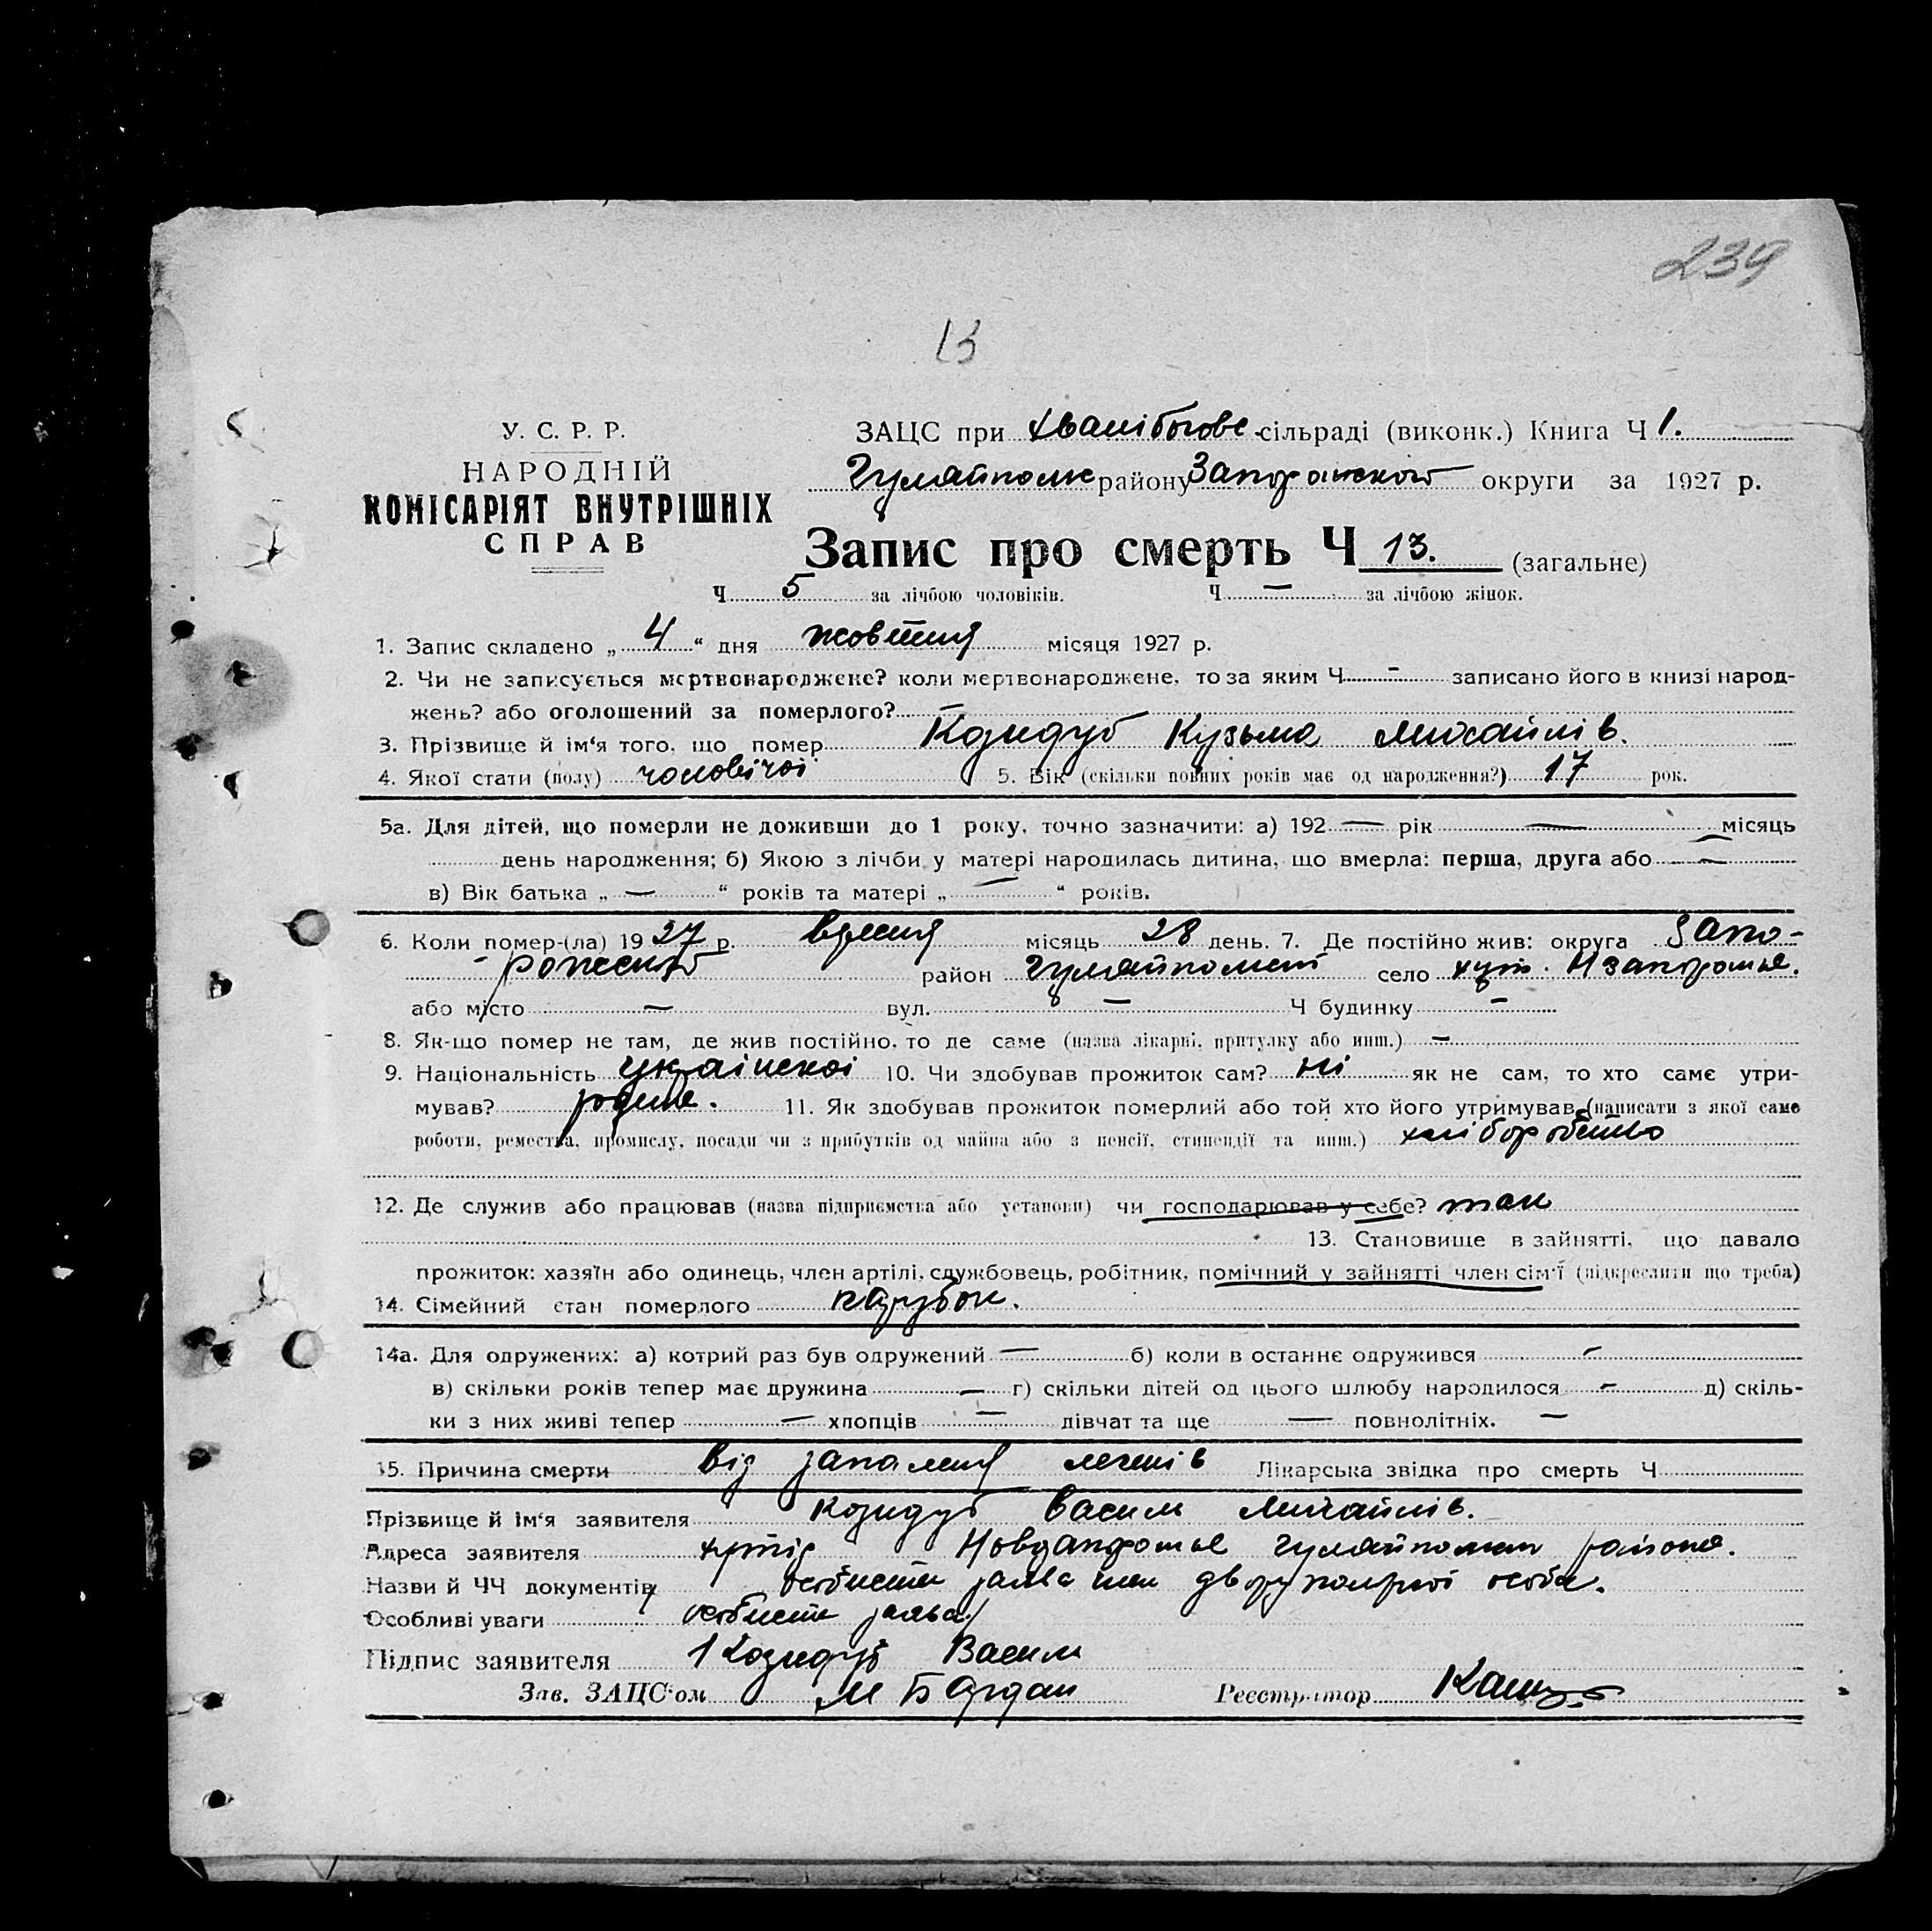 239
13
У. С. Р. Р.
НАРОДНІЙ
КОМІСАРІЯТ ВНУТРІШНІХ
СПРАВ
ЗАЦС при сільраді (виконк.) Книга Ч 1.
Гуляйпольс району Запоріжської округи за 1927 р.
Запис про смерть Ч 13. (загальне)
Ч 5 за лічбою чоловіків. Ч — за лічбою жінок.
1. Запис складено „ 4 “ дня жовтня місяця 1927 р.
2. Чи не записується мертвонароджене? коли мертвонароджене, то за яким Ч - записано його в книзі народ-
жень? або оголошений за померлого? —
3. Прізвище й ім‘я того, що помер Козидуб Кузьма Михайлів.
4. Якої стати (полу) чоловічої 5. Вік (скільки повних років має од народження?) 17 рок.
5а. Для дітей, що померли не доживши до 1 року, точно зазначити: а) 192 — рік — місяць —
день народження; б) Якою з лічби у матері народилась дитина, що вмерла: перша, друга або —
в) Вік батька „ — “ років та матері „ — “ років.
6. Коли помер-(ла) 1927 р. вресня місяць 28 день. 7. Де постійно жив: округа Запо-
- район Гуляйпольськ село хут.
або місто — вул. — Ч будинку -
8. Як-що помер не там, де жив постійно, то де саме (назва лікарні, притулку або инш.) -
9. Національність української 10. Чи здобував прожиток сам? ні як не сам, то хто саме утри-
мував? родина. 11. Як здобував прожиток померлий або той хто його утримував (написати з якої саме
роботи, ремества, промислу, посади чи з прибутків од майна або з пенсії, стипендії та инш.) хліборобство
12. Де служив або працював (назва підприємства або установи) чи господарював у себе? так
13. Становище в зайнятті, що давало
прожиток: хазяїн або одинець, член артілі, службовець, робітник, помічний у зайнятті член сім‘ї (підкреслити що треба)
14. Сімейний стан померлого парубок.
14а. Для одружених: а) котрий раз був одружений — б) коли в останнє одружився -
в) скільки років тепер має дружина — г) скільки дітей од цього шлюбу народилося - д) скіль-
ки з них живі тепер — хлопців — дівчат та ще — повнолітніх. —
15. Причина смерти від запалення легенів Лікарська звідка про смерть Ч
Прізвище й ім‘я заявителя Козидуб Василь Михайлів.
Адреса заявителя хутір Гуляйпольськ району.
Назви й ЧЧ документів особиста заява член двору особи.
Особливі уваги особиста заява
Підпис заявителя Козидуб Василь
Зав. ЗАЦС‘ом М
Реєстратор